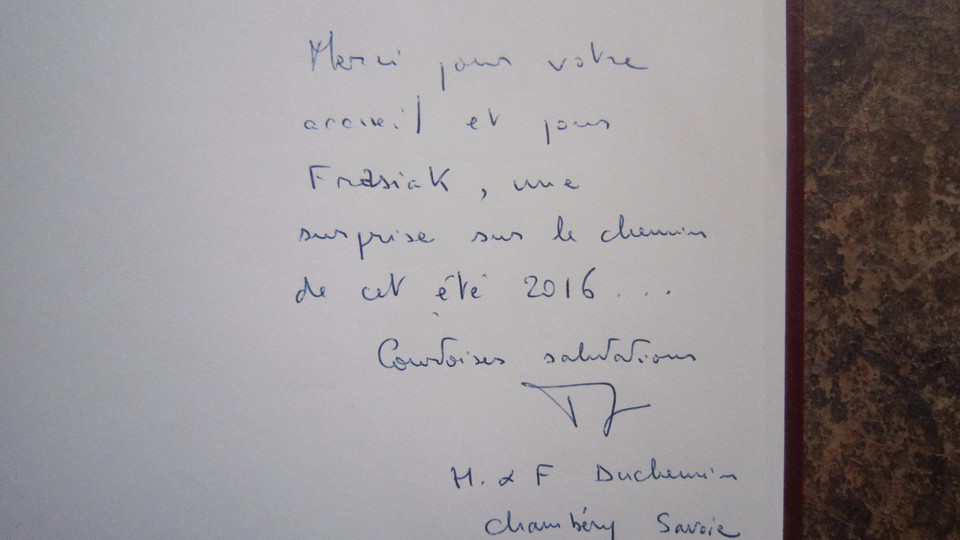 Merci pour votre
accueil et pour
Frasiak, une
surprise sur le chemin
de cet été 2016 ...
Courtoises salutations
M. & F Duchemin
Chambéry Savoie